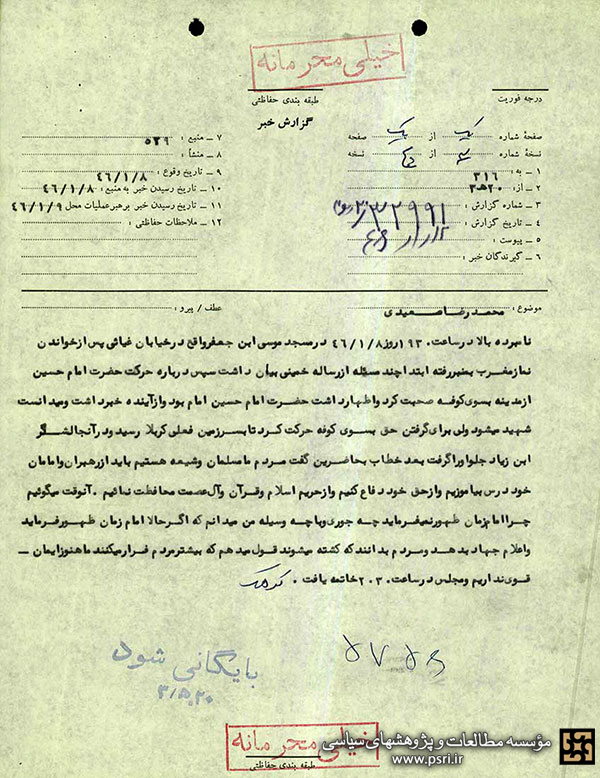 خیلی محرمانه
درجه فوریت
طبقه بندی حفاظتی
گزارش خبر
صفحه شماره یک از یک صفحه
نسخه شماره سه از نسخه
۱ ــ به : ۳۱۶
۲ ــ از : ۲۰ﻫ۳
۳ ــ شماره گزارش :
۴ ــ تاریخ گزارش :
۵ ــ پیوست :
۶ ــ گیرندگان خبر :
۷ ــ منبع : ۵۲۹
۸ ــ منشأ :
۹ ــ تاریخ وقوع : ۴۶/۱/۸
۱۰ ــ تاریخ رسیدن خبر به منبع : ۴۶/۱/۸
۱۱ ــ تاریخ رسیدن خبر برهبر عملیات محل ۴۶/۱/۹
۱۲ ــ ملاحظات حفاظتی :
موضوع : محمد رضا سعیدی
عطف / پیرو :
نامبرده بالا در ساعت ۱۹۳۰ روز ۴۶/۱/۸ در مسجد موسی ابن جعفر واقع در خیابان غیاثی پس از خواندن
نماز مغرب بمنبر رفته ابتدا چند مسئله از رساله خمینی بیان داشت سپس درباره حرکت حضرت امام حسین
از مدینه بسوی کوفه صحبت کرد و اظهار داشت حضرت امام حسین امام بود و از آینده خبر داشت ومیدانست
شهید میشود ولی برای گرفتن حق بسوی کوفه حرکت کرد تا بسرزمین فعلی کربلا رسید و در آنجا لشگر
ابن زیاد جلو اورا گرفت بعد خطاب بحاضرین گفت مردم ما مسلمان و شیعه هستیم باید از رهبران و امامان
خود درس بیاموزیم و از حق خود دفاع کنیم و از حریم اسلام و قرآن و آل عصمت محافظت نمائیم . آنوقت میگوئیم
چرا امام زمان ظهور نمیفرماید چه جوری و باچه وسیله من میدانم که اگر حالا امام زمان ظهور فرماید
و اعلام جهاد بدهد و مردم بدانند که کشته میشوند قول میدهم که بیشتر مردم فرار میکنند ما هنوز ایمان ــ
قوی نداریم و مجلس در ساعت ۲۰۳۰ خاتمه یافت .
بایگانی شود
۳/۵.۲۰
خیلی محرمانه
طبقه بندی حفاظتی
مؤسسه مطالعات و پژوهشهای سیاسی
www.psri.ir